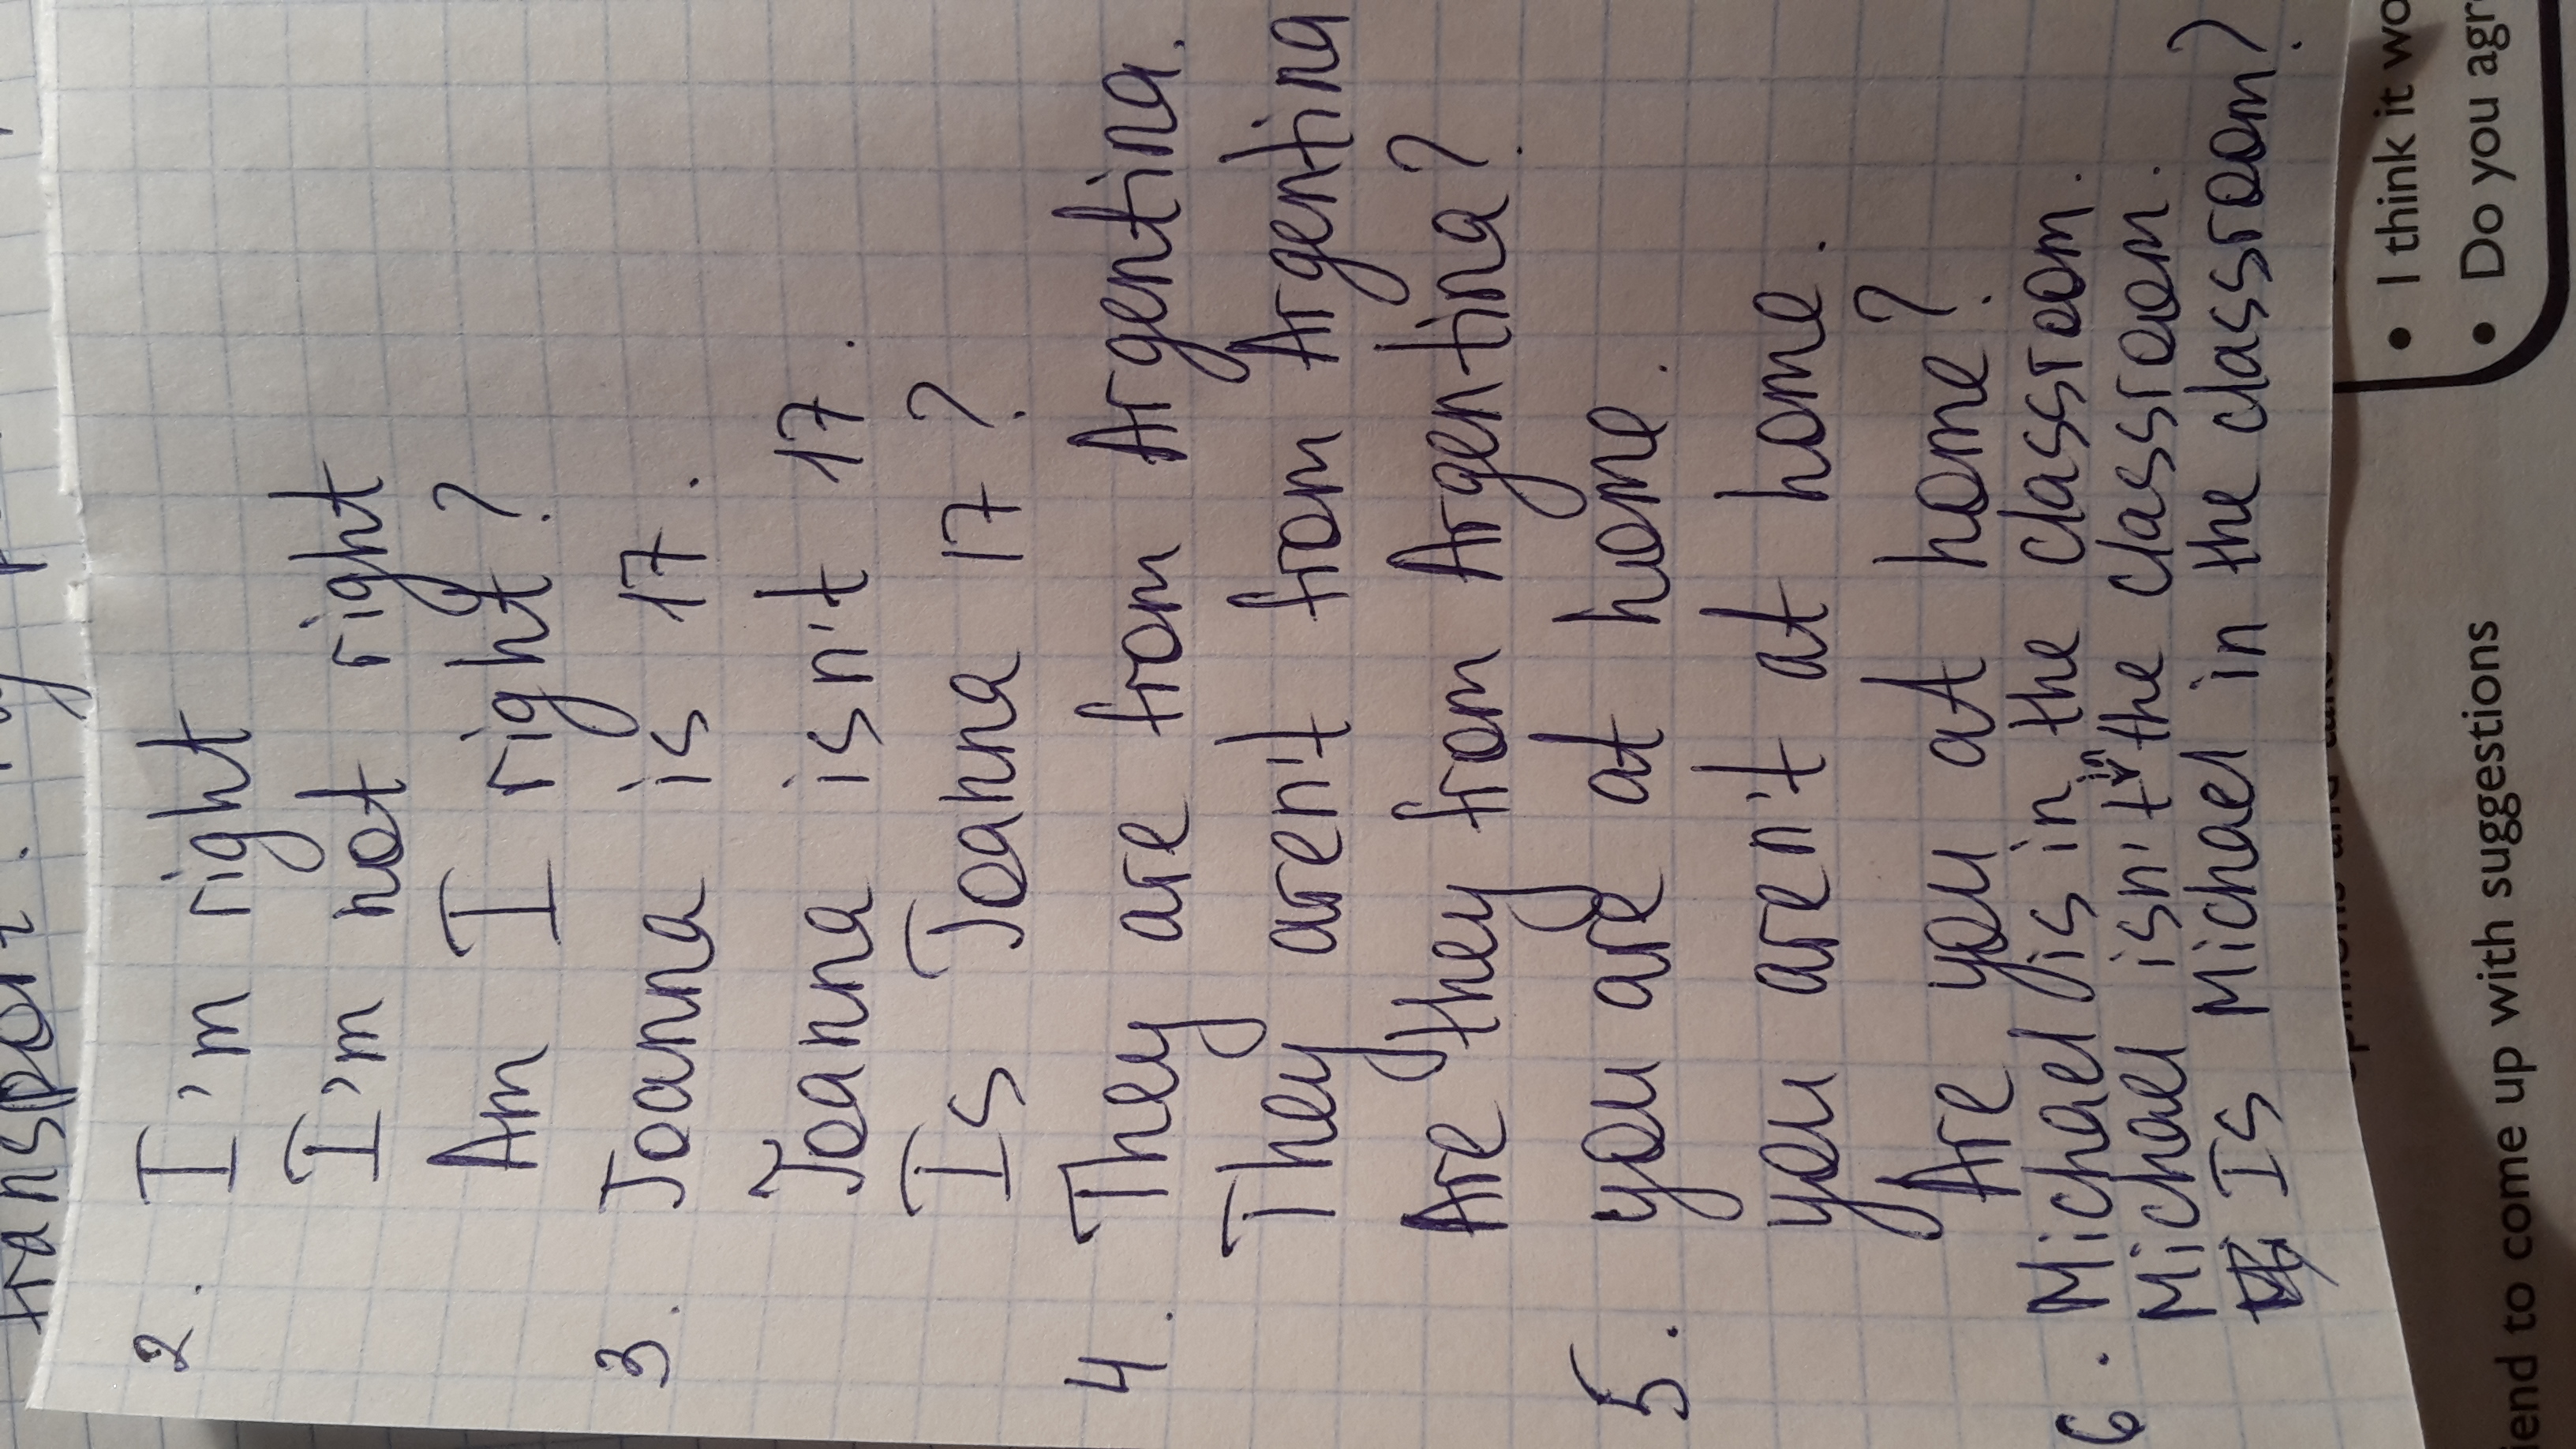 transport.
2. I'm right
I'm not right
Am I right?
3. Joanna is 17.
Joanna isn't 17.
Is Joanna 17?
4. They are from Argentina.
They aren't from Argentina
Are they from Argentina?
5. you are at home.
you aren't at home.
Are you at home?
6. Michael is in the classroom.
Michael isn't in the classroom.
Is Michael in the classroom?
end to come up with suggestions
• I think it wo
• Do you agr